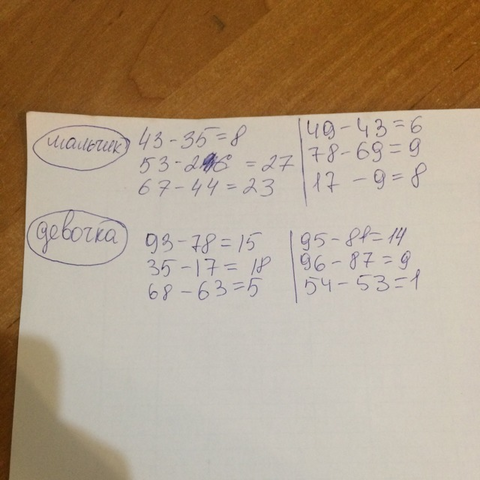 мальчик
43-35=8
53-26 = 27
67-44=23
49-43=6
78-69=9
17 -9=8
девочка
93-78=15
35-17= 18
68-63=5
95-81=14
96-87=9
54-53=1